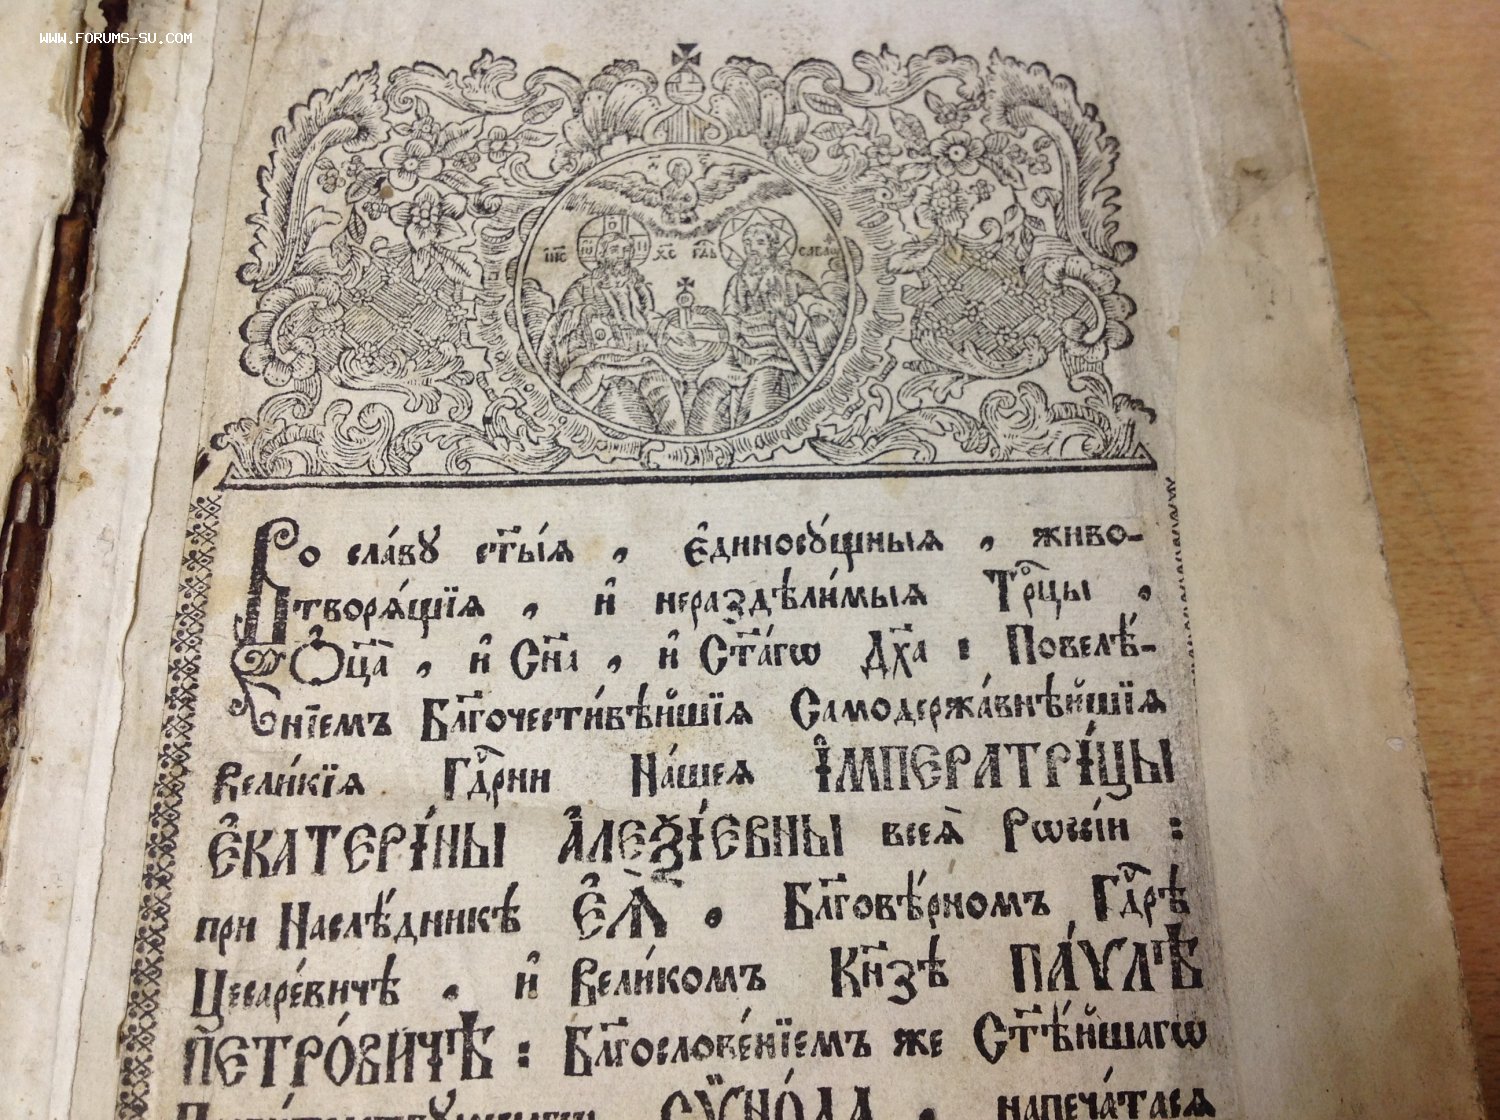 WWW.FORUMS-SU.COM
І҆И҃С Х҃С
Во сла́вꙋ ст҃ы́ѧ , є҆диносꙋ́щныѧ , живо-
творѧ́щїѧ , и҆ нераздѣли́мыѧ Трⷪ҇цы ,
Ѻ҆ц҃а̀ , и҆ Сн҃а , и҆ Ст҃а́гѡ Дх҃а : Повелѣ́-
нїемъ Бл҃гочести́вѣйшїѧ Самодержа́внѣйшїѧ
вели́кїѧ Гдⷭ҇рни на́шеѧ І҆МПЕРАТРІ́ЦЫ
Є҆КАТЕРІ́НЫ А҆ЛЕѮІ́ЕВНЫ всеѧ̀ Рѡссі́и :
при Наслѣ́дникѣ Є҆Ѧ̀ , Бл҃говѣ́рномъ Гдⷭ҇рѣ
Цесаре́вичѣ , и҆ вели́комъ Кн҃зѣ ПА́ѴЛѢ
ПЕТРО́ВИЧѢ : Бл҃гослове́нїемъ же Ст҃ѣ́йшагѡ
СѴНО́ДА , напеча́тасѧ